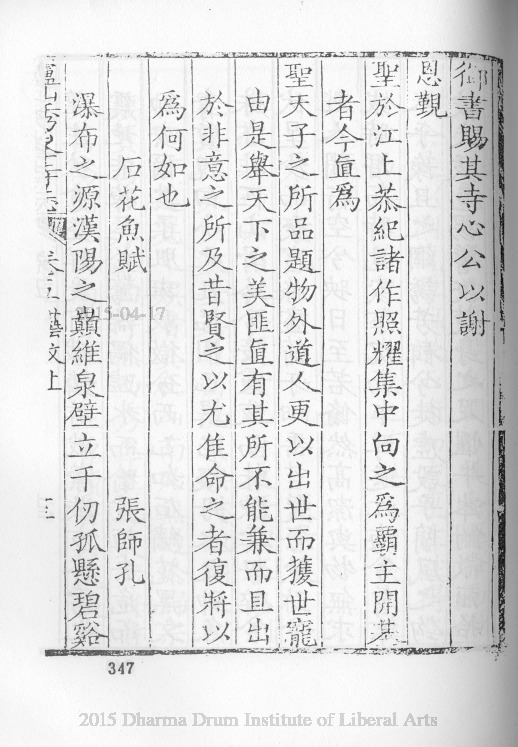 御書賜其寺心公以謝
恩覲
聖於江上恭紀諸作照耀集中向之為霸主開基
者今直為
聖天子之所品題物外道人更以出世而獲世寵
由是舉天下之美匪直有其所不能兼而且出
於非意之所及昔賢之以尤隹命之者復將以
為何如也
石花魚賦 張師孔
瀑布之源漢陽之巔維泉壁立千仞孤懸碧谿
卷五 藝文上 三
2015-04-17
347
2015 Dharma Drum Institute of Liberal Arts